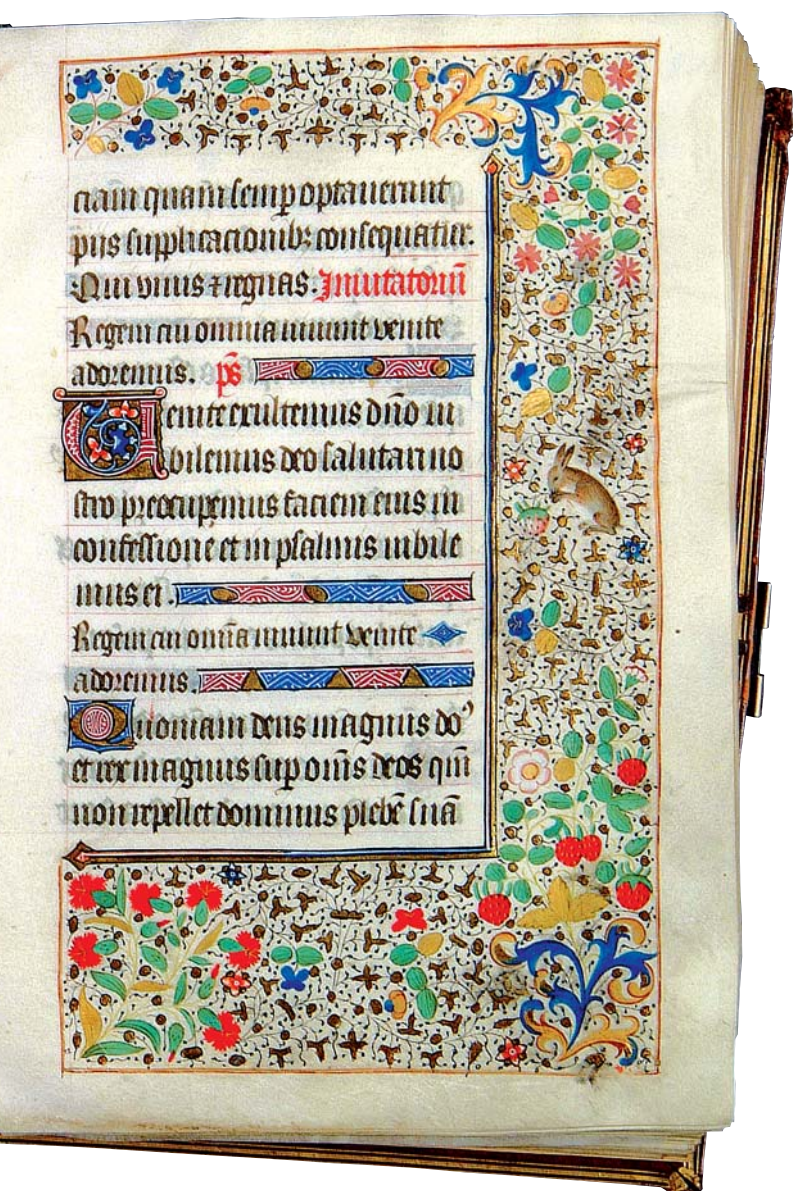 ciam quam semp optauerunt
pijs supplicacionibꝫ consequatur.
Qui viuis ⁊ regnas. Inuitatoriũ
Regem cui omnia uiuunt venite
adoremus. p̃s
Uenite exultemus dño iu
bilemus deo salutari no
stro preocupemus faciem eius in
confessione et in psalmis iubile
mus ei.
Regem cui om̃a uiuunt venite
adoremus.
Quoniam deus magnus do᷒
et rex magnus sup om̃s deos qm̃
non repellet dominus plebẽ suã